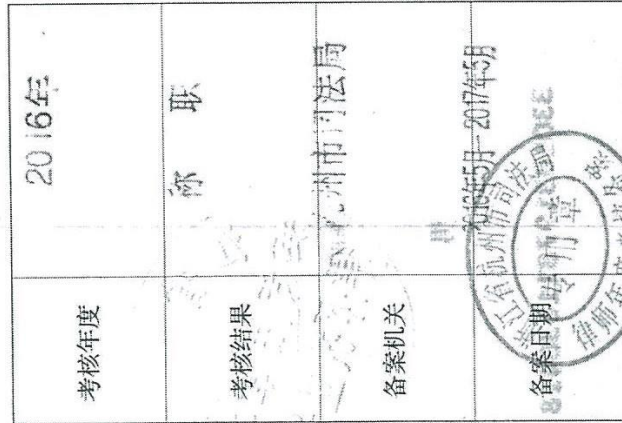 考核年度 2016年
考核结果 称职
备案机关 杭州市司法局
备案日期 2016年5月-2017年5月
浙江省杭州市司法局
专用章
律师年度考核备案